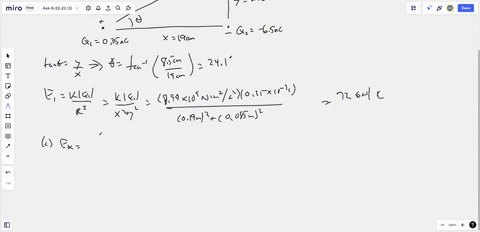 miro
Ask 6-22-22 (3)
Share
θ
Q₁ = 0.35nC
x = 19cm
Q₂ = -6.5nC
tanθ = y/x ⇒ θ = tan⁻¹ (8.5cm / 19cm) = 24.1°
E₁ = k|Q₁| / R² = k|Q₁| / x²+y² = (8.99 × 10⁹ N·m²/C²)(0.35×10⁻⁹C) / (0.19m)² + (0.085m)² = 72.6 N/C
(c) Eₓ =